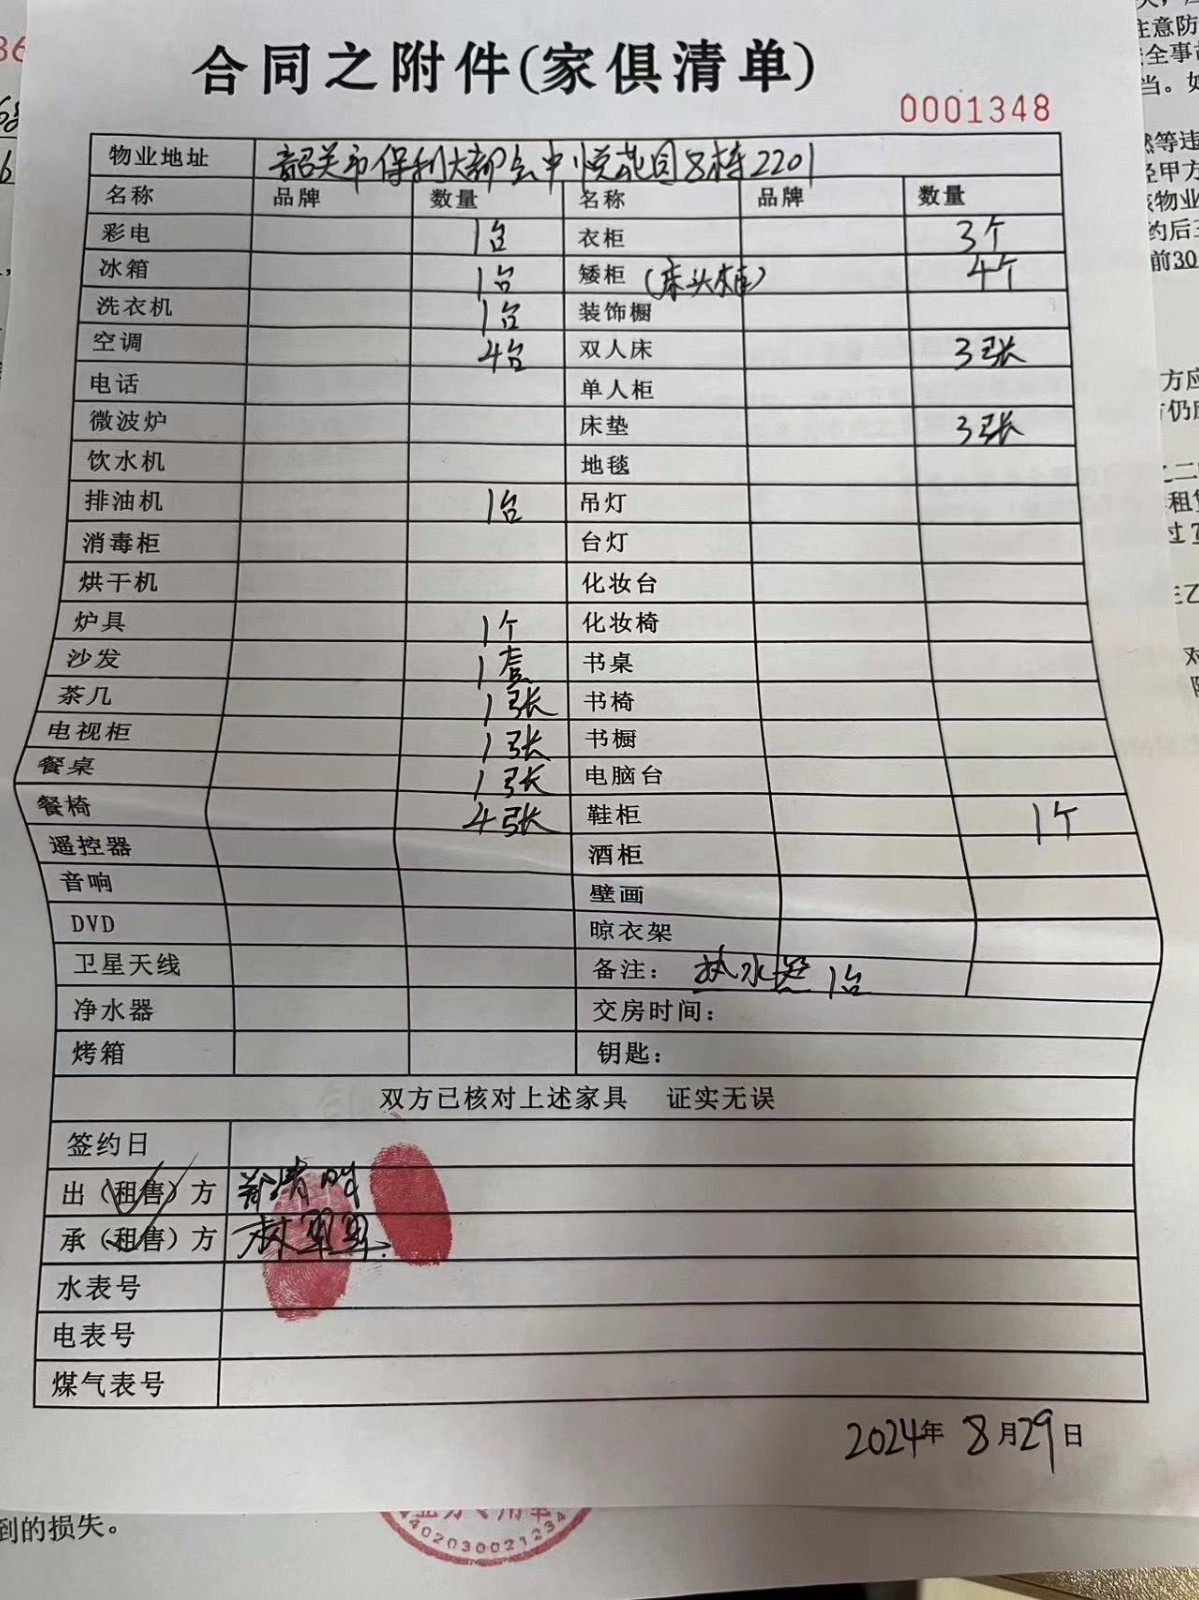 合同之附件(家俱清单)
0001348
物业地址 韶关市保利大都会中悦花园8栋2201
名称 品牌 数量 名称 品牌 数量
彩电 1台 衣柜 3个
冰箱 1台 矮柜 (床头柜) 4个
洗衣机 1台 装饰橱
空调 4台 双人床 3张
电话 单人柜
微波炉 床垫 3张
饮水机 地毯
排油机 1台 吊灯
消毒柜 台灯
烘干机 化妆台
炉具 1个 化妆椅
沙发 1套 书桌
茶几 1张 书椅
电视柜 1张 书橱
餐桌 1张 电脑台
餐椅 4张 鞋柜 1个
遥控器 酒柜
音响 壁画
DVD 晾衣架
卫星天线 备注: 热水器 1台
净水器 交房时间:
烤箱 钥匙:
双方已核对上述家具 证实无误
签约日
出(租售)方
承(租售)方 林
水表号
电表号
煤气表号
2024年 8月29日
到的损失。
4402030021234
注意防
全事
当。如
然等违
经甲方
该物业
约后三
前30
方应
方仍应
之二
租赁
过
对